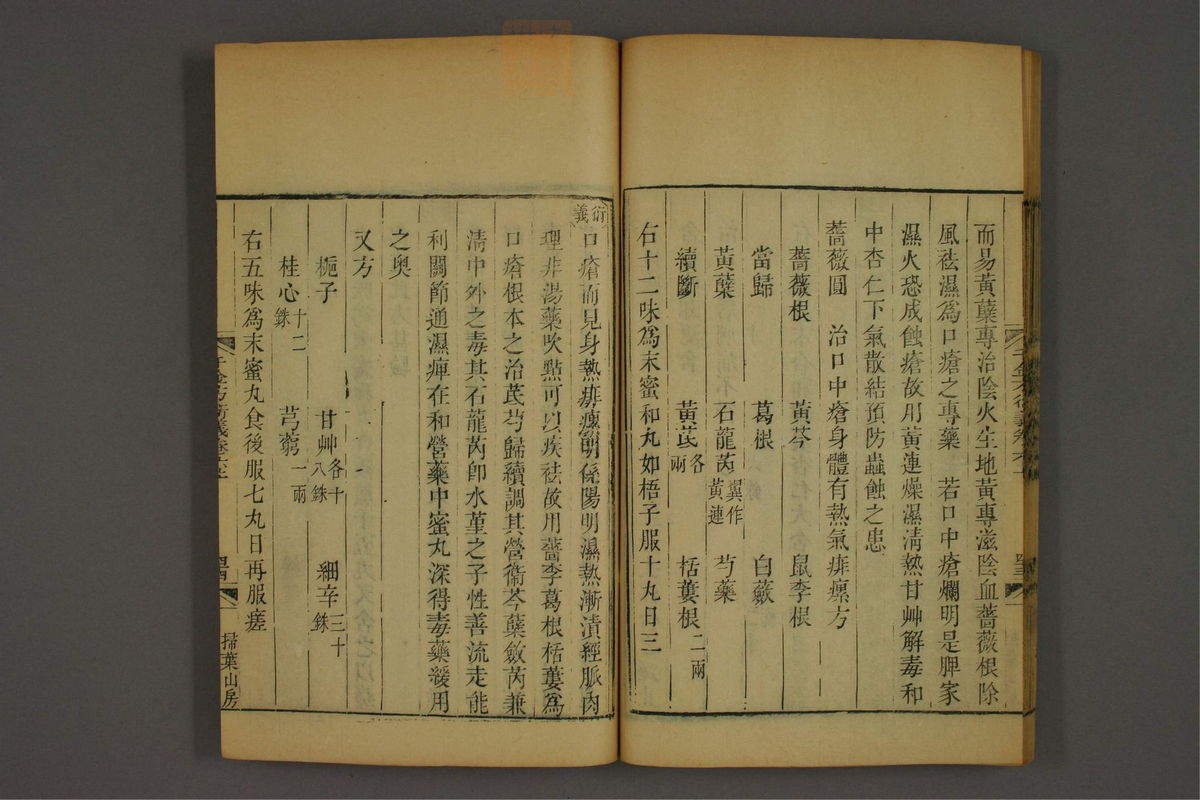 而易黃蘗專治陰火生地黃專滋陰血薔薇根除
風祛濕爲口瘡之專藥　若口中瘡爛明是脾家
濕火恐成蝕瘡故用黃連燥濕清熱甘艸解毒和
中杏仁下氣散結預防蟲蝕之患
薔薇圓　治口中瘡身體有熱氣痱瘰方
薔薇根　黃芩　鼠李根
當歸　葛根　白蘞
黃蘗　石龍芮翼作黃連　芍藥
續斷　黃芪各一兩　栝蔞根二兩
右十二味爲末蜜和丸如梧子服十丸日三
千金方衍義卷六上
衍義
口瘡而見身熱痱瘰明係陽明濕熱漸漬經脈肉
理非湯藥吹㸃可以疾祛故用薔李葛根栝蔞爲
口瘡根本之治芪芍歸續調其營衞芩蘗蘞芮兼
清中外之毒其石龍芮卽水堇之子性善流走能
利關節通濕痺在和營藥中蜜丸深得毒藥緩用
之奥
又方
梔子　甘艸各十八銖　細辛三十銖
桂心十二銖　芎藭一兩
右五味爲末蜜丸食後服七丸日再服瘥
千金方衍義卷六上
掃葉山房